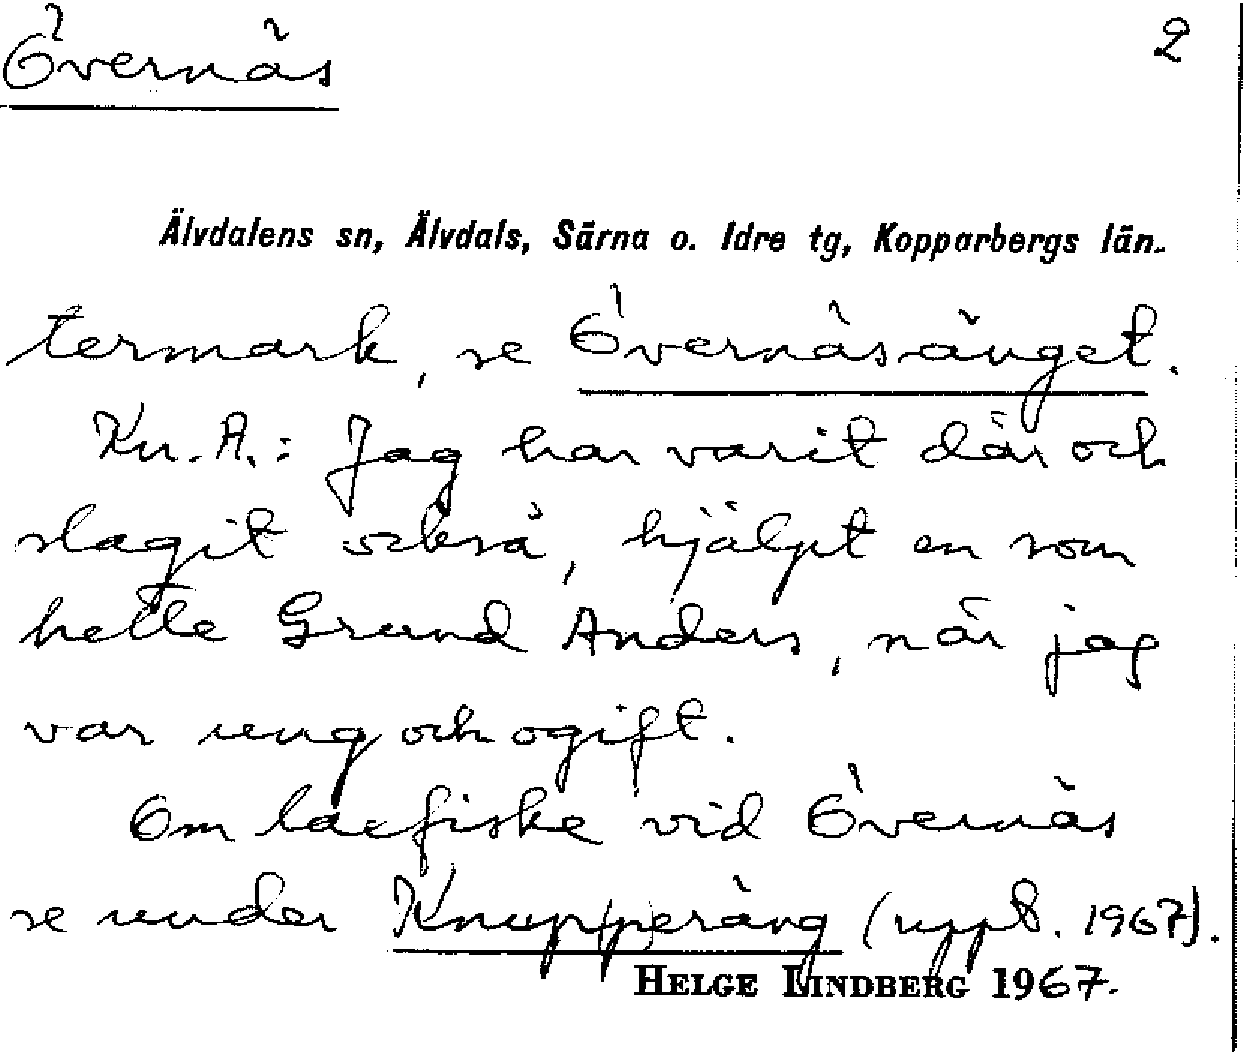 Övernäs 2
Älvdalens sn, Älvdals, Särna o. Idre tg, Kopparbergs län.
termark, se Övernäsänget.
Kn. A.: Jag har varit där och
slagit också, hjälpt en som
hette Grund Anders, när jag
var ung och ogift.
Om laxfiske vid Övernäs
se under Knup(p)eräng (uppt. 1967).
HELGE LINDBERG 1967.